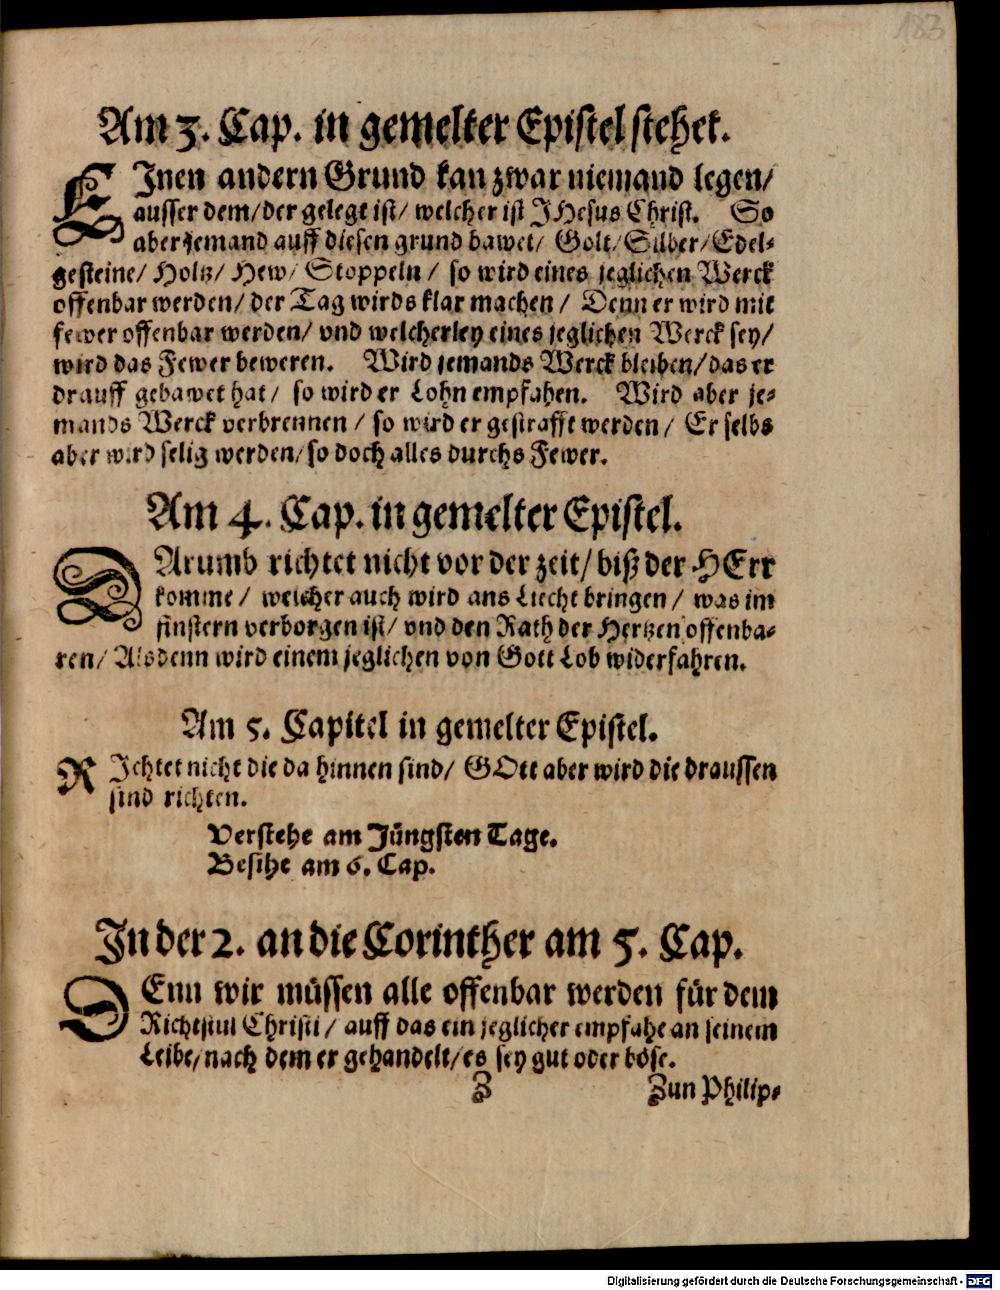 183
Am 3. Cap. in gemelter Epistel stehet.
EJnen andern Grund kan zwar niemand legen/
ausser dem/ der gelegt ist/ welcher ist JHesus Christ. So
aber jemand auff diesen grund bawet/ Golt/ Silber/ Edel-
gesteine/ Holtz/ Hew/ Stoppeln/ so wird eines jeglichen Werck
offenbar werden/ der Tag wirds klar machen/ Denn er wird mit
fewer offenbar werden/ vnd welcherley eines jeglichen Werck sey/
wird das Fewer beweren. Wird jemands Werck bleiben/ das er
drauff gebawet hat/ so wird er Lohn empfahen. Wird aber je-
mands Werck verbrennen/ so wird er gestrafft werden/ Er selbs
aber wird selig werden/ so doch alles durchs Fewer.
Am 4. Cap. in gemelter Epistel.
DArumb richtet nicht vor der zeit/ biß der HErr
komme/ welcher auch wird ans Liecht bringen/ was im
finstern verborgen ist/ vnd den Rath der Hertzen offenba-
ren/ Alsdenn wird einem jeglichen von Gott Lob widerfahren.
Am 5. Capitel in gemelter Epistel.
RJchtet nicht die da hinnen sind/ GOtt aber wird die draussen
sind richten.
Verstehe am Jüngsten Tage.
Besihe am 6. Cap.
Jn der 2. an die Corinther am 5. Cap.
DEnn wir müssen alle offenbar werden für dem
Richtstul Christi/ auff das ein jeglicher empfahe an seinem
Leibe/ nach dem er gehandelt/ es sey gut oder böse.
Z Zun Philip-
Digitalisierung gefördert durch die Deutsche Forschungsgemeinschaft - DFG